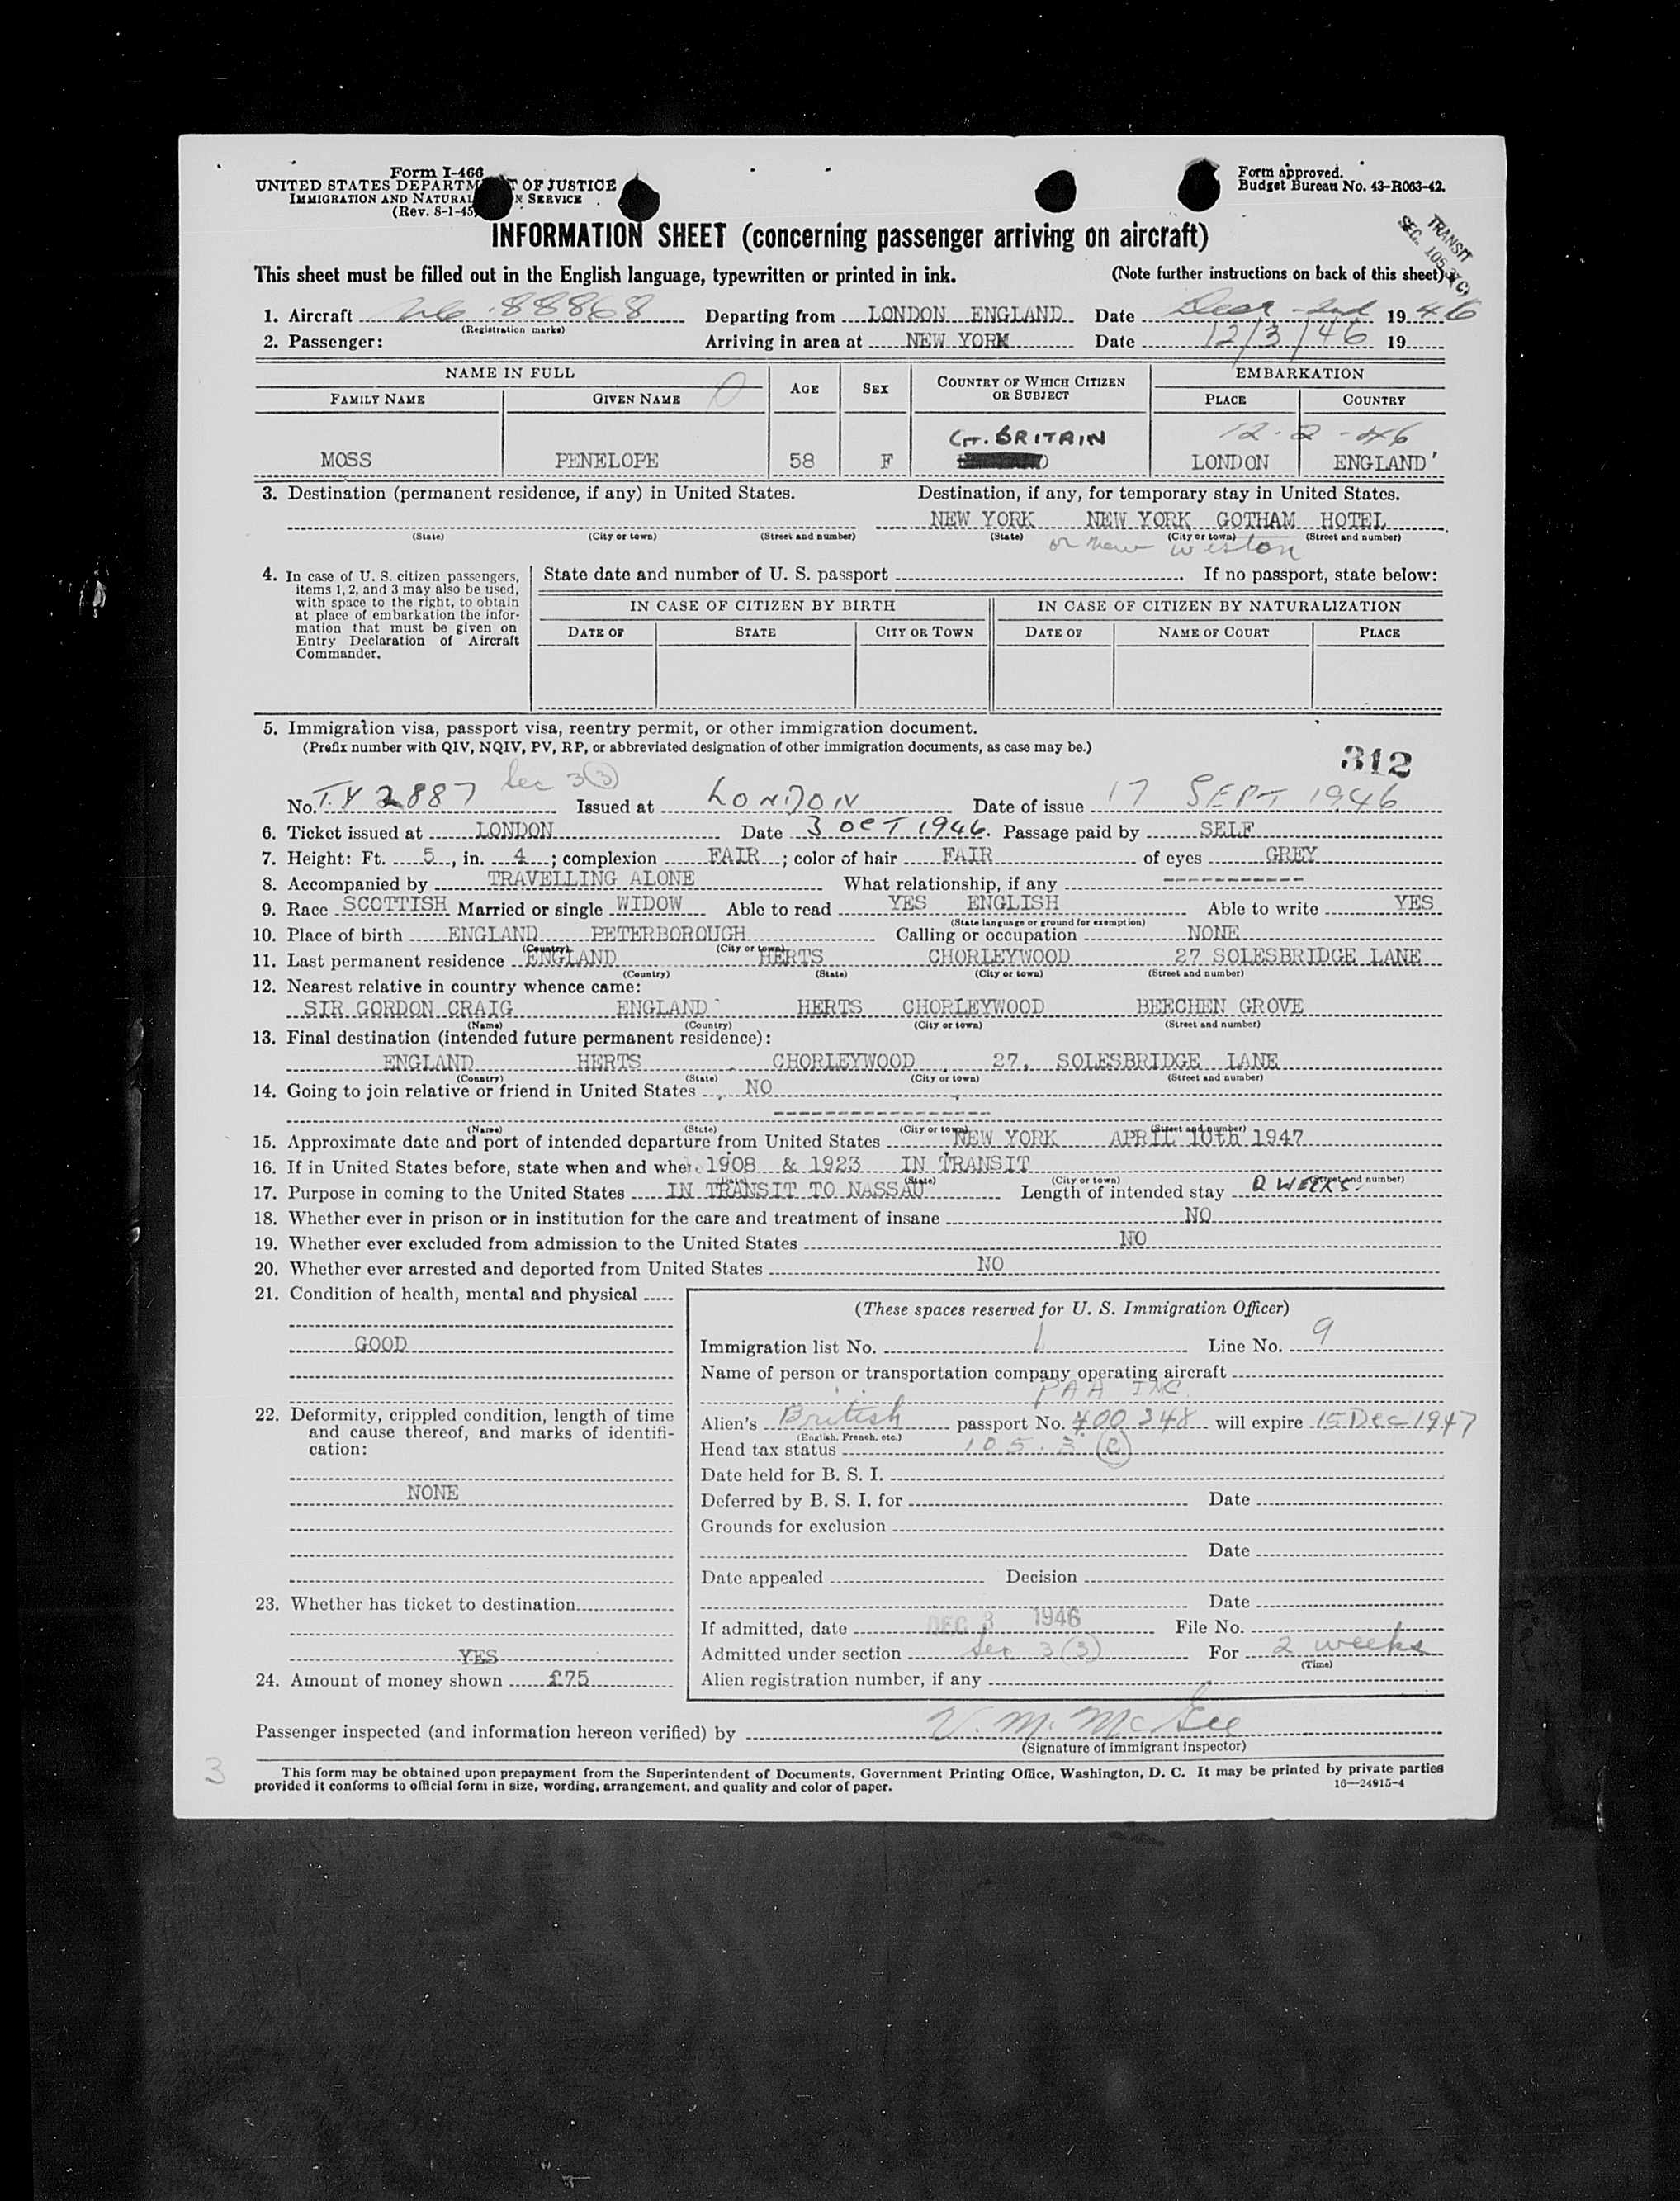 Form I-466
UNITED STATES DEPARTM T OF JUSTICE
IMMIGRATION AND NATURAL N SERVICE
(Rev. 8-1-45)
Form approved.
Budget Bureau No. 43-R063-42.
TRANSIT
SEC. 105.3(C)
INFORMATION SHEET (concerning passenger arriving on aircraft)
This sheet must be filled out in the English language, typewritten or printed in ink. (Note further instructions on back of this sheet)
1. Aircraft 88868 Departing from LONDON ENGLAND Date 2nd 1946
(Registration marks)
2. Passenger: Arriving in area at NEW YORK Date 12/3/46 19
NAME IN FULL AGE SEX COUNTRY OF WHICH CITIZEN OR SUBJECT EMBARKATION
FAMILY NAME GIVEN NAME PLACE COUNTRY
GT. BRITAIN 12-2-46
MOSS PENELOPE 58 F LONDON ENGLAND
3. Destination (permanent residence, if any) in United States. Destination, if any, for temporary stay in United States.
NEW YORK NEW YORK GOTHAM HOTEL
(State) (City or town) (Street and number) (State) (City or town) (Street and number)
or New Weston
4. In case of U. S. citizen passengers, items 1, 2, and 3 may also be used, with space to the right, to obtain at place of embarkation the information that must be given on Entry Declaration of Aircraft Commander.
State date and number of U. S. passport If no passport, state below:
IN CASE OF CITIZEN BY BIRTH IN CASE OF CITIZEN BY NATURALIZATION
DATE OF STATE CITY OR TOWN DATE OF NAME OF COURT PLACE
5. Immigration visa, passport visa, reentry permit, or other immigration document.
(Prefix number with QIV, NQIV, PV, RP, or abbreviated designation of other immigration documents, as case may be.)
312
Sec 3(3)
No. T.V 2887 Issued at LONDON Date of issue 17 SEPT 1946
6. Ticket issued at LONDON Date 3 OCT 1946. Passage paid by SELF
7. Height: Ft. 5, in. 4; complexion FAIR; color of hair FAIR of eyes GREY
8. Accompanied by TRAVELLING ALONE What relationship, if any -----------
9. Race SCOTTISH Married or single WIDOW Able to read YES ENGLISH Able to write YES
(State language or ground for exemption)
10. Place of birth ENGLAND PETERBOROUGH Calling or occupation NONE
(Country) (City or town)
11. Last permanent residence ENGLAND HERTS CHORLEYWOOD 27 SOLESBRIDGE LANE
(Country) (State) (City or town) (Street and number)
12. Nearest relative in country whence came:
SIR GORDON CRAIG ENGLAND HERTS CHORLEYWOOD BEECHEN GROVE
(Name) (Country) (City or town) (Street and number)
13. Final destination (intended future permanent residence):
ENGLAND HERTS CHORLEYWOOD 27, SOLESBRIDGE LANE
(Country) (State) (City or town) (Street and number)
14. Going to join relative or friend in United States NO
-----------------
(Name) (State) (City or town) (Street and number)
15. Approximate date and port of intended departure from United States NEW YORK APRIL 10th 1947
16. If in United States before, state when and where 1908 & 1923 IN TRANSIT
(Date) (State) (City or town) (Street and number)
17. Purpose in coming to the United States IN TRANSIT TO NASSAU Length of intended stay 2 WEEKS.
18. Whether ever in prison or in institution for the care and treatment of insane NO
19. Whether ever excluded from admission to the United States NO
20. Whether ever arrested and deported from United States NO
21. Condition of health, mental and physical
GOOD
22. Deformity, crippled condition, length of time and cause thereof, and marks of identification:
NONE
23. Whether has ticket to destination
YES
24. Amount of money shown £75
(These spaces reserved for U. S. Immigration Officer)
Immigration list No. 1 Line No. 9
Name of person or transportation company operating aircraft
PAA INC.
Alien's British passport No. 400348 will expire 15 Dec 1947
(English, French, etc.)
Head tax status 105.3(C)
Date held for B. S. I.
Deferred by B. S. I. for Date
Grounds for exclusion
Date
Date appealed Decision
Date
If admitted, date DEC 3 1946 File No.
Admitted under section Sec 3(3) For 2 weeks
(Time)
Alien registration number, if any
Passenger inspected (and information hereon verified) by V. M. McGee
(Signature of immigrant inspector)
3
This form may be obtained upon prepayment from the Superintendent of Documents, Government Printing Office, Washington, D. C. It may be printed by private parties
provided it conforms to official form in size, wording, arrangement, and quality and color of paper. 16—24915-4